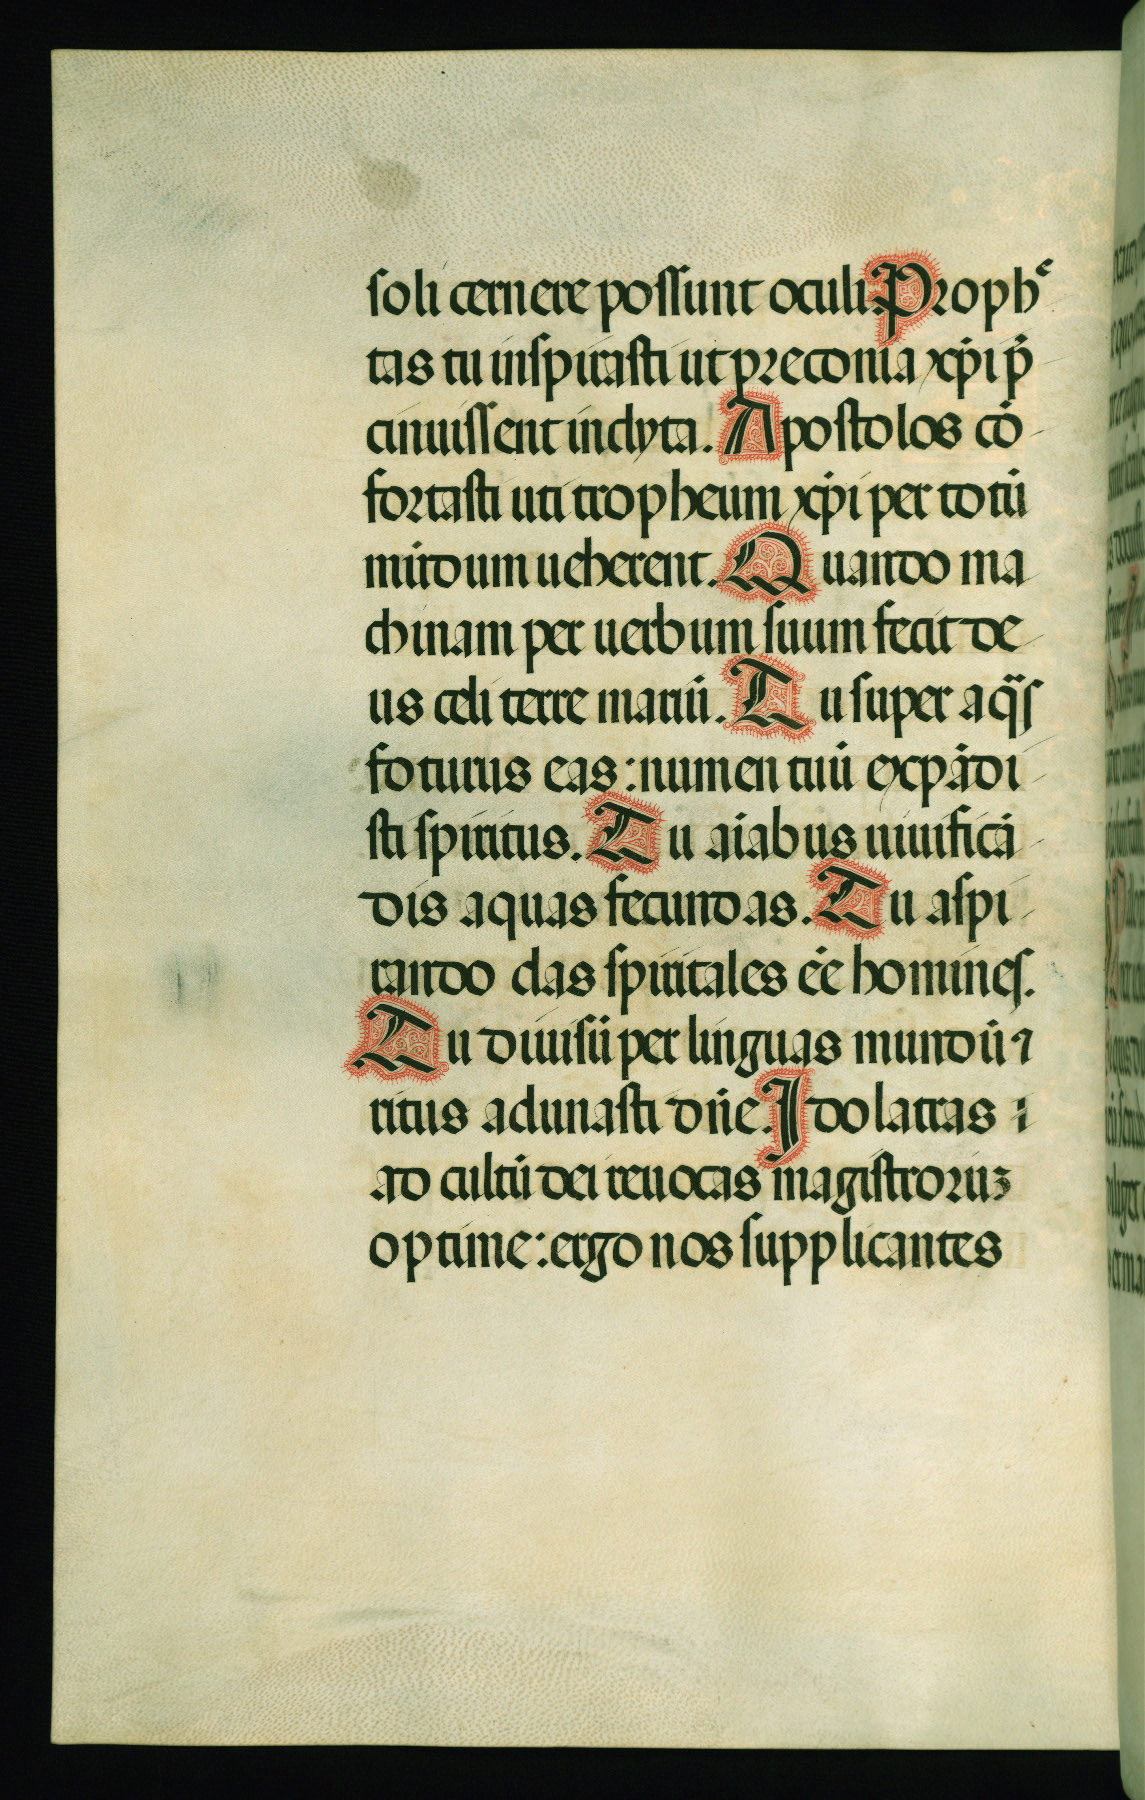 soli cernere possunt oculi. Prophe
tas tu inspirasti ut preconia xp̄i p̄
cinuissent inclyta. Apostolos cō
fortasti uti tropheum xp̄i per totū
mūdum ueherent. Quando ma
chinam per uerbum suum fecit de
us celi terre mariū. Tu super aq̄s
foturus eas: numen tuū expādi
sti spiritus. Tu aīabus uiuificā
dis aquas fecundas. Tu aspi
rando das spiritales eē homines.
Tu diuisū per linguas mundū ⁊
ritus adunasti dn̄e. Idolatras :
ad cultū dei reuocas magistroruꝫ
optime: ergo nos supplicantes